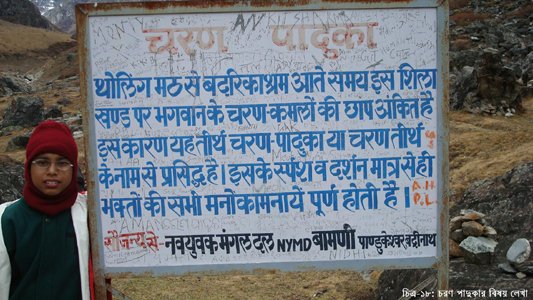 चरण पादुका
थोलिंग मठ से बदरिकाश्रम आते समय इस शिला
खण्ड पर भगवान के चरण-कमलों की छाप अंकित है
इस कारण यह तीर्थ चरण-पादुका या चरण तीर्थ
के नाम से प्रसिद्ध है। इसके स्पर्श व दर्शन मात्र से ही
भक्तों की सभी मनोकामनायें पूर्ण होती है।
सौजन्य से - नवयुवक मंगल दल NYMD बामणी पाण्डुकेश्वर बद्रीनाथ
চিত্র-১৮: চরণ পাদুকার বিষয় লেখা